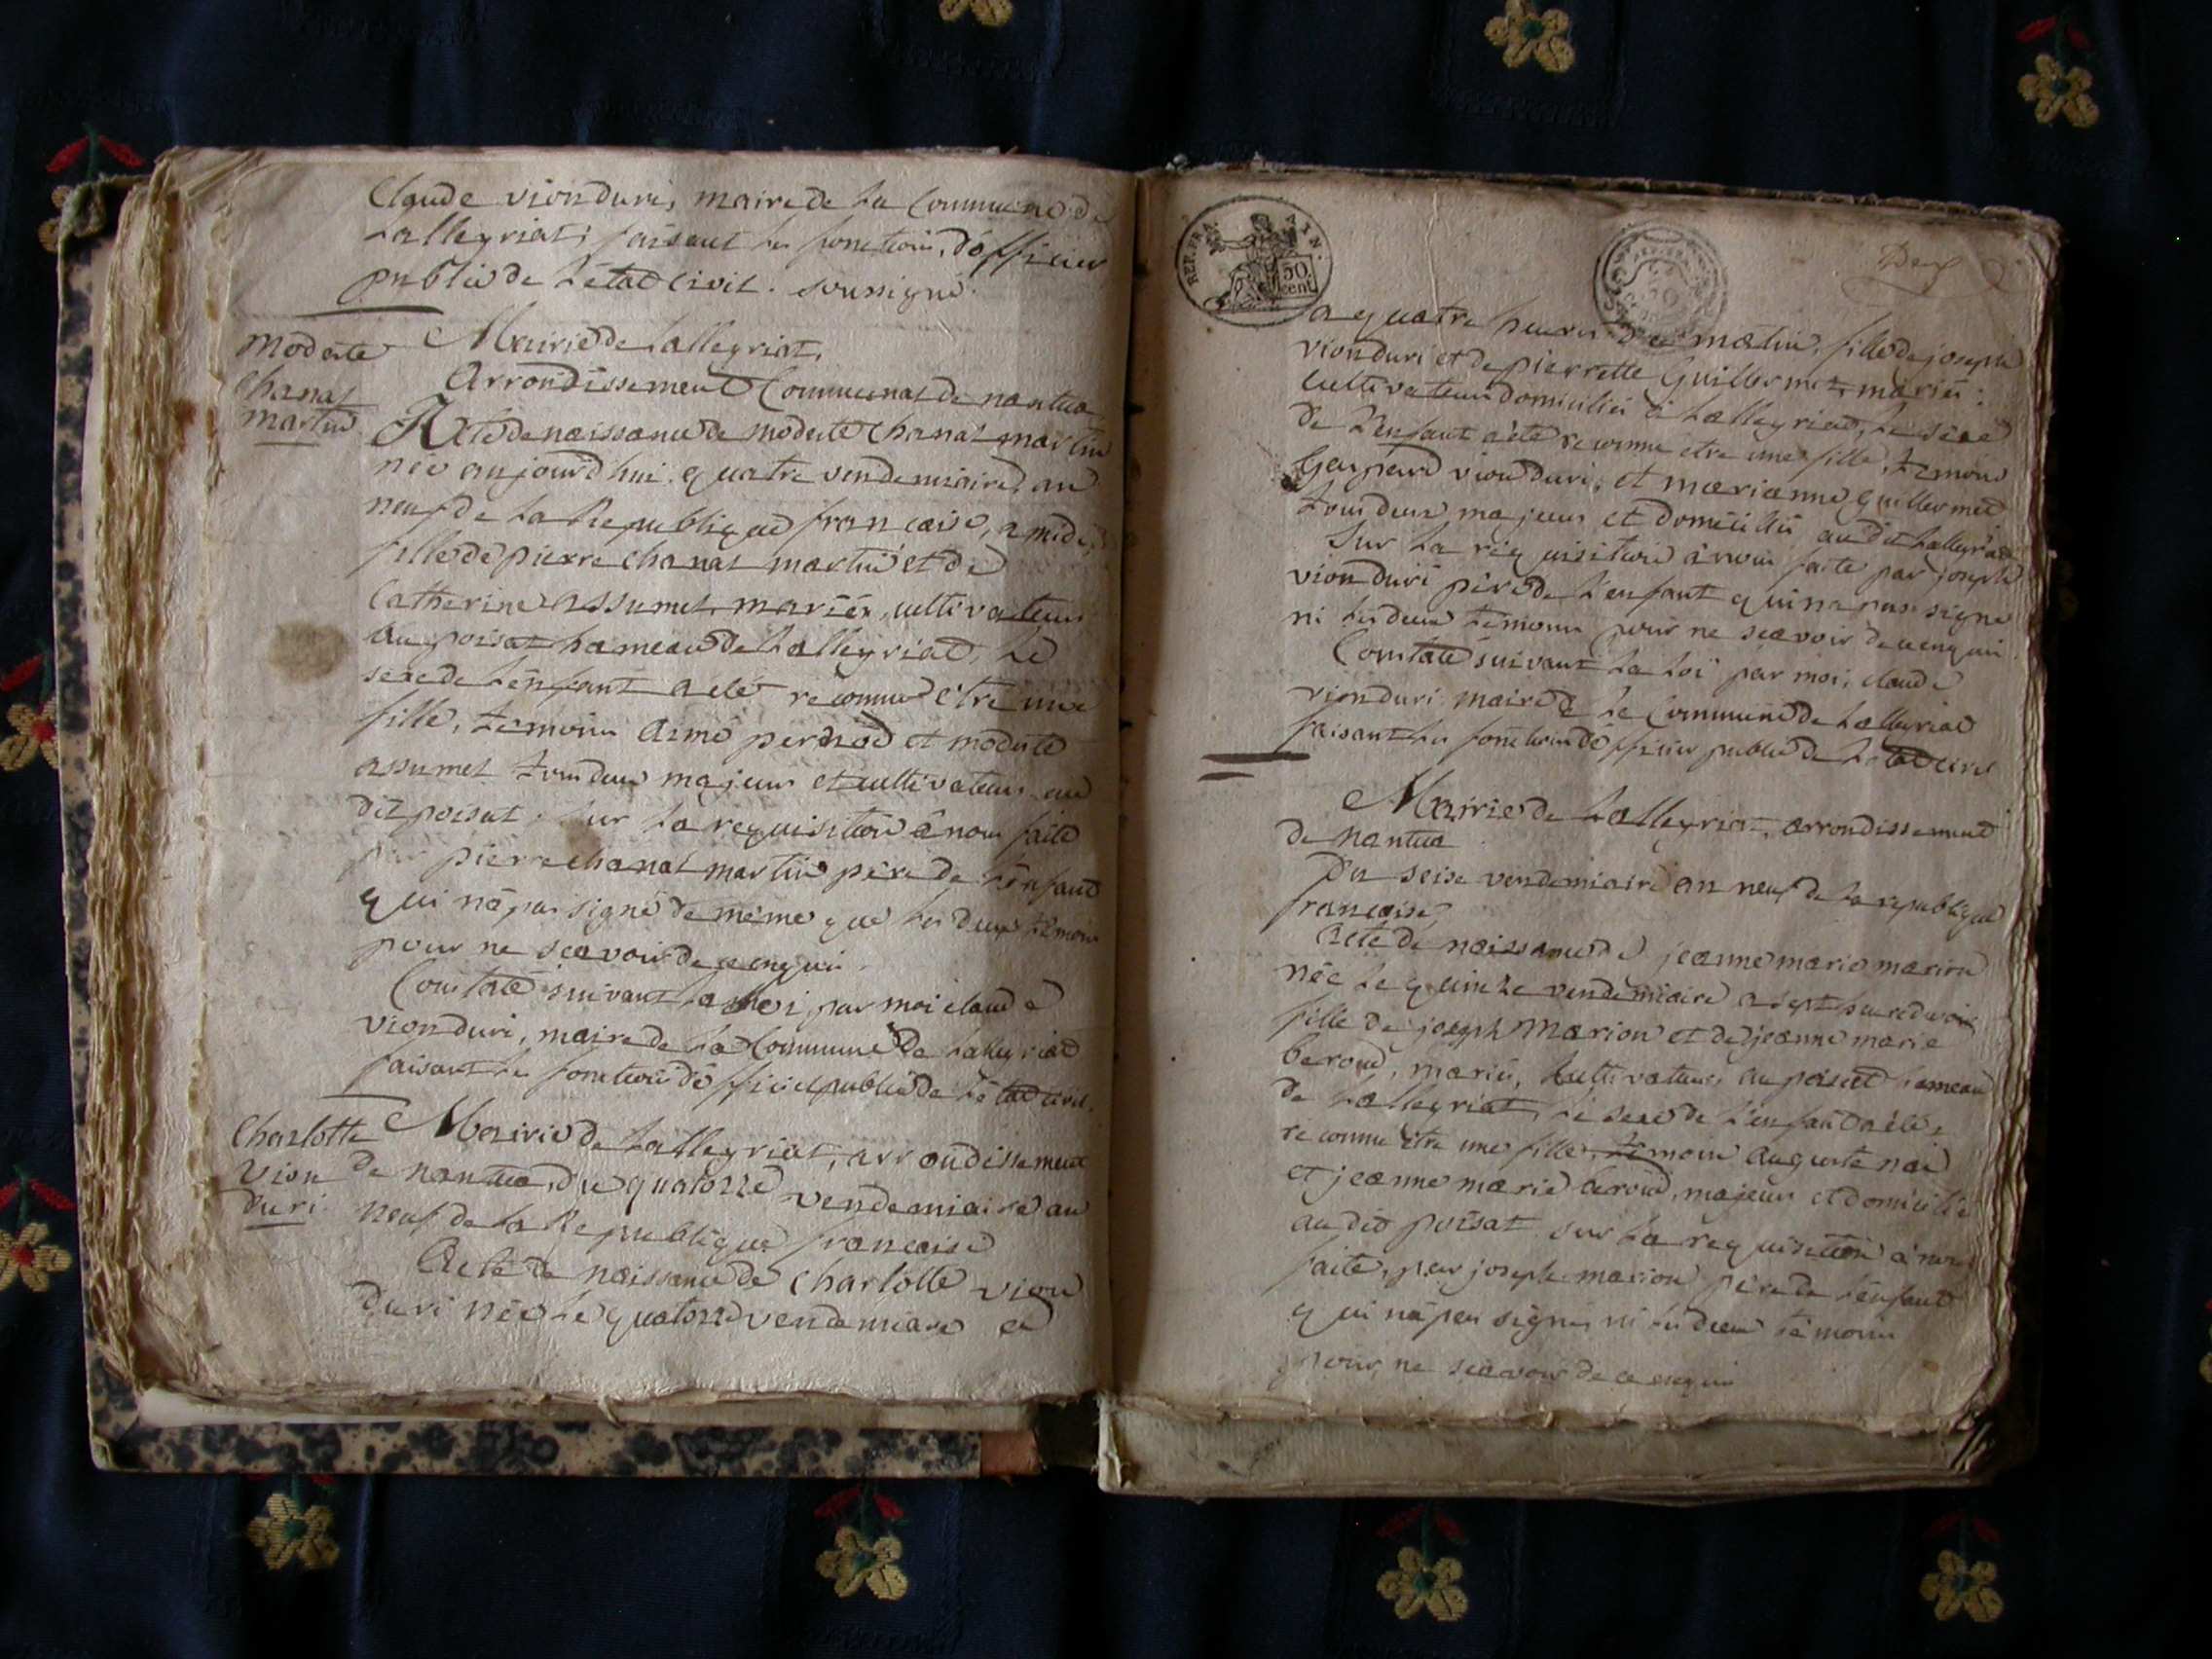 Claude vionduri, maire de la Commune de
Lalleyriat, faisant les fonctions, d'officier
public de L'état civil. soussigné.
Modeste
Chanal
martin
Mairie de Lalleyriat,
Arrondissement Communal de nantua
Acte de naissance de modeste Chanal martin
née aujourd'hui quatre vendemiaire, an
neuf de La Republique francaise, a midi,
fille de pierre Chanal martin et de
Catherine assumel mariés, cultivateurs
au poisat hameau de Lalleyriat, Le
sexe de L'enfant a eté reconnu etre une
fille, temoins aimé pernod et modeste
assumel tous deux majeurs et cultivateurs au
dit poisat, sur La requisition à nous faite
par pierre chanal martin pere de L'enfant
qui n'a pas signé de même que les deux témoins
pour ne sçavoir de ce enquis.
Constaté suivant La Loi par moi claude
vionduri, maire de La Commune de Lalleyriat
faisant les fonctions d'officier public de L'état civil.
Charlotte
Vion
duri
Mairie de Lalleyriat, arrondissement
de nantua, du quatorze vendemiaire an
neuf de La Republique francaise
Acte de naissance de Charlotte vion
duri née le quatorze vendemiaire
REP. FRA. AIN.
50 cent
a quatre heures du matin, fille de joseph
vionduri et de pierrette Guillermet mariés:
cultivateurs domiciliés à Lalleyriat, Le sexe
de L'enfant a été reconnu etre une fille, temoins
Gaspard vionduri, et marianne guillermet
tous deux majeurs et domiciliés au dit Lalleyriat
Sur La requisition à nous faite par joseph
vionduri père de L'enfant qui n'a pas signé
ni les deux temoins pour ne sçavoir de ce enquis
Constaté suivant La Loi par moi, claude
vionduri maire de La Commune de Lalleyriat
faisant les fonctions d'officier public de L'état civil
Mairie de Lalleyriat, arrondissement
de Nantua
Du seise vendemiaire an neuf de La republique
francaise,
Acte de naissance de jeanne marie marion
née Le quinze vendemiaire a sept heures du soir
fille de joseph Marion et de jeanne marie
beroud, mariés, Cultivateurs au poisat hameau
de Lalleyriat, Le sexe de L'enfant a été
reconnu etre une fille, temoins auguste
et jeanne marie beroud, majeurs et domiciliés
au dit poisat sur La requisition à nous
faite, par joseph marion père de L'enfant
qui n'a pas signé ni les deux témoins
pour ne sçavoir de ce enquis